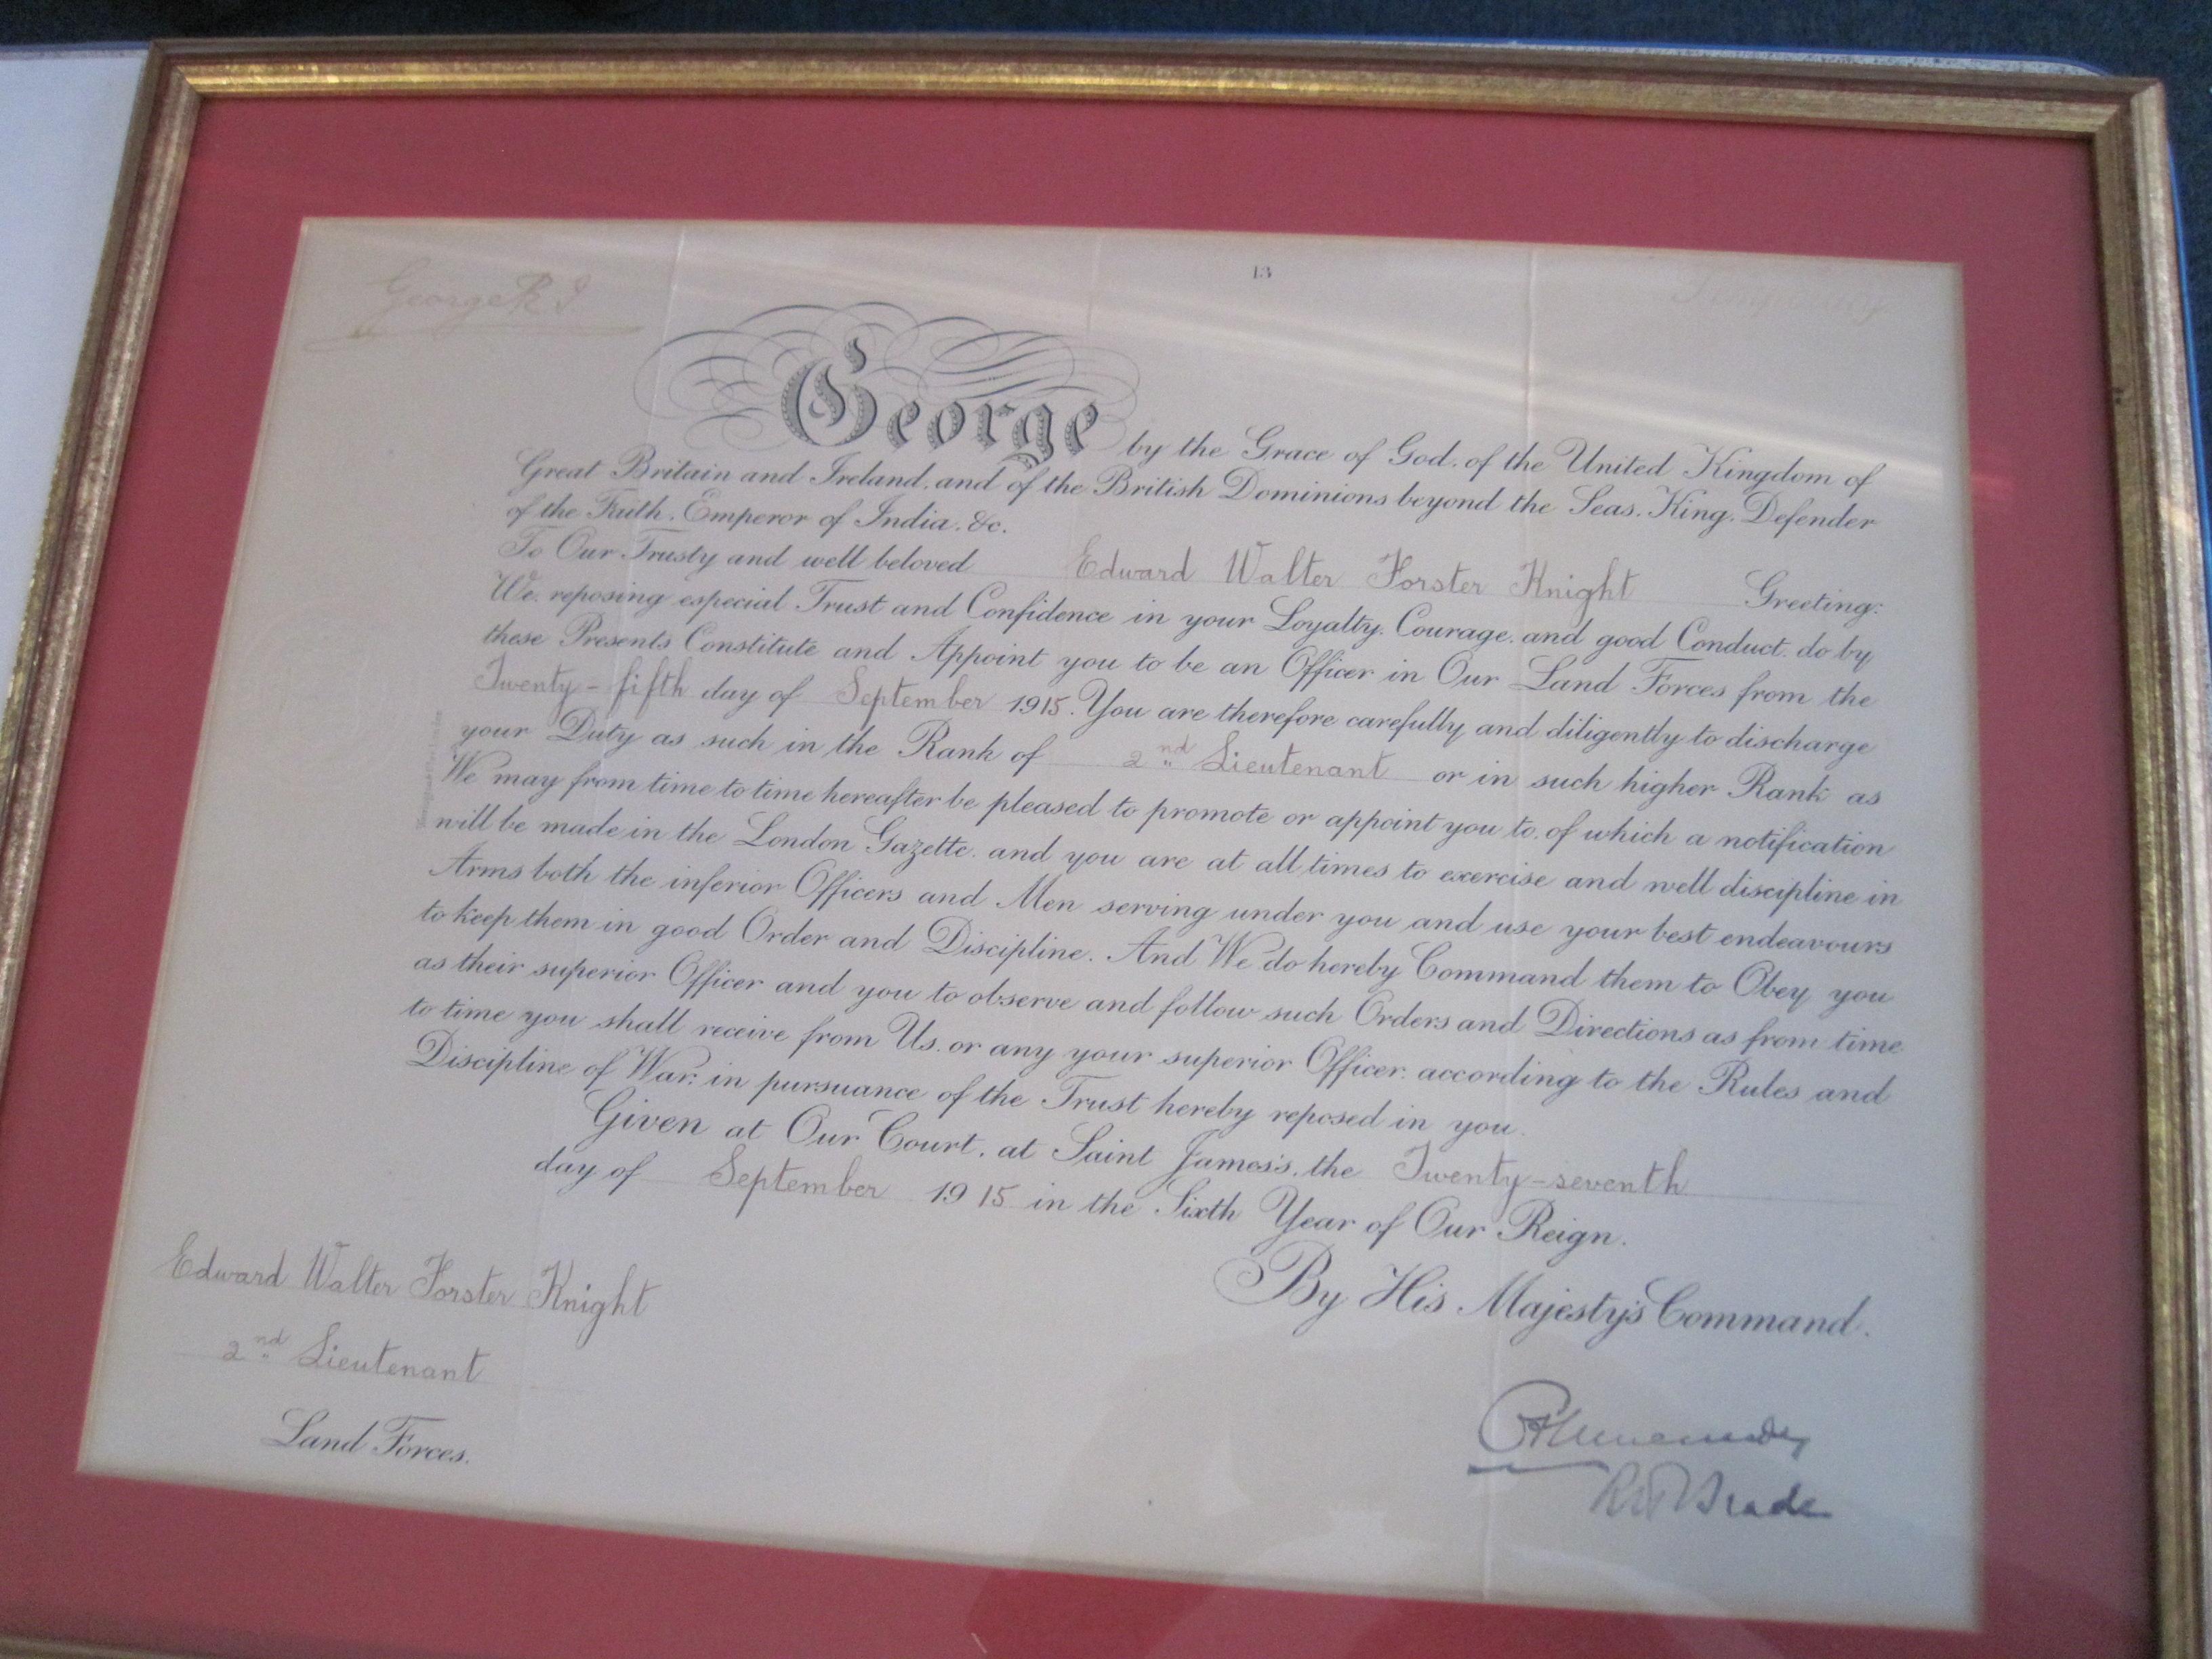 George R I.
13
Temporary
George by the Grace of God. of the United Kingdom of
Great Britain and Ireland. and of the British Dominions beyond the Seas. King. Defender
of the Faith. Emperor of India. &c.
To Our Trusty and well beloved Edward Walter Forster Knight Greeting:
We. reposing especial Trust and Confidence in your Loyalty. Courage. and good Conduct. do by
these Presents Constitute and Appoint you to be an Officer in Our Land Forces from the
Twenty-fifth day of September 1915. You are therefore carefully and diligently to discharge
your Duty as such in the Rank of 2nd Lieutenant or in such higher Rank as
We may from time to time hereafter be pleased to promote or appoint you to. of which a notification
will be made in the London Gazette. and you are at all times to exercise and well discipline in
Arms both the inferior Officers and Men serving under you and use your best endeavours
to keep them in good Order and Discipline. And We do hereby Command them to Obey you
as their superior Officer and you to observe and follow such Orders and Directions as from time
to time you shall receive from Us. or any your superior Officer. according to the Rules and
Discipline of War. in pursuance of the Trust hereby reposed in you.
Given at Our Court. at Saint James's. the Twenty-seventh
day of September 1915 in the Sixth Year of Our Reign.
By His Majesty's Command.
Edward Walter Forster Knight
2nd Lieutenant
Land Forces.